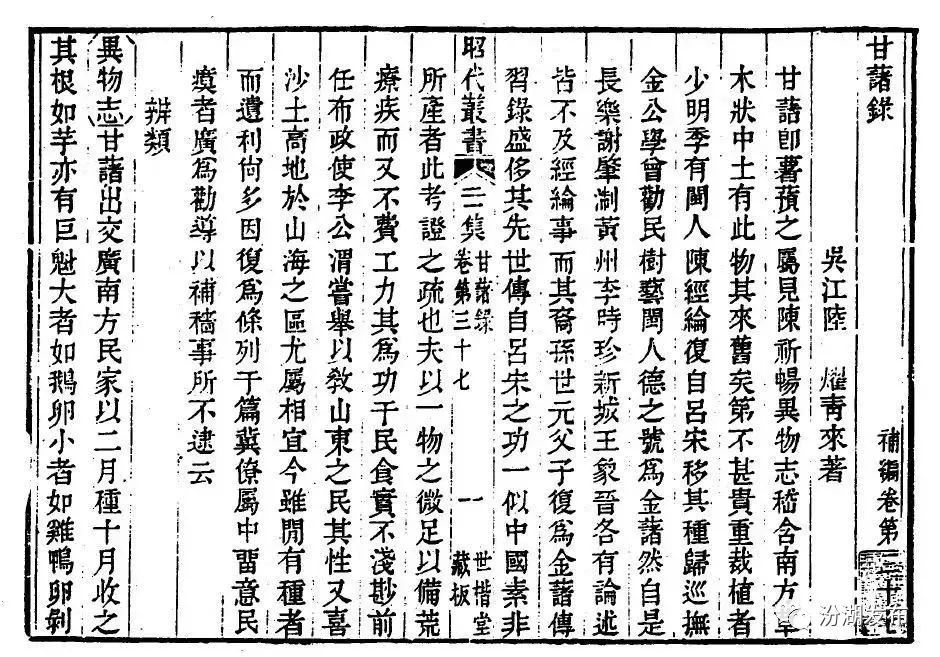 甘藷錄
補編卷第三十七
吳江陸 燿靑來著
甘藷卽薯蕷之屬見陳祈暢異物志嵇含南方草
木狀中土有此物其來舊矣第不甚貴重裁植者
少明季有閩人陳經綸復自呂宋移其種歸巡撫
金公學曾勸民樹藝閩人德之號爲金藷然自是
長樂謝肇淛黃州李時珍新城王象晉各有論述
皆不及經綸事而其裔孫世元父子復爲金藷傳
習錄盛侈其先世傳自呂宋之功一似中國素非
昭代叢書 二集 甘藷錄 卷第三十七 一 世楷堂 藏板
所產者此考證之疏也夫以一物之微足以備荒
療疾而又不費工力其爲功于民食實不淺尠前
任布政使李公渭嘗舉以敎山東之民其性又喜
沙土高地於山海之區尤屬相宜今雖閒有種者
而遺利尙多因復爲條列于篇冀僚屬中畱意民
瘼者廣爲勸導以補穡事所不逮云
辨類
異物志甘藷出交廣南方民家以二月種十月收之
其根如芋亦有巨魁大者如鵝卵小者如雞鴨卵剝
汾湖发布